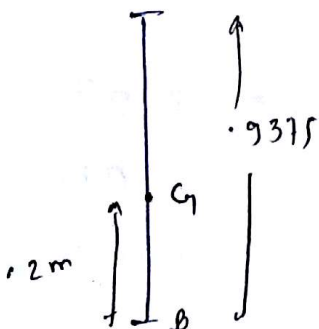 .9375
G
.2m
B